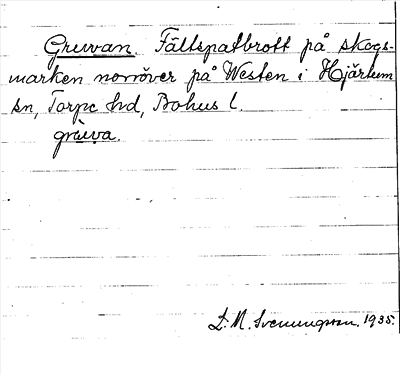 Gruvan. Fältspatbrott på skogs-
marken norröver på Westen i Hjärtum
sn, Torpe hd, Bohus l.
grùva.
L. M. Svenungsson. 1935.